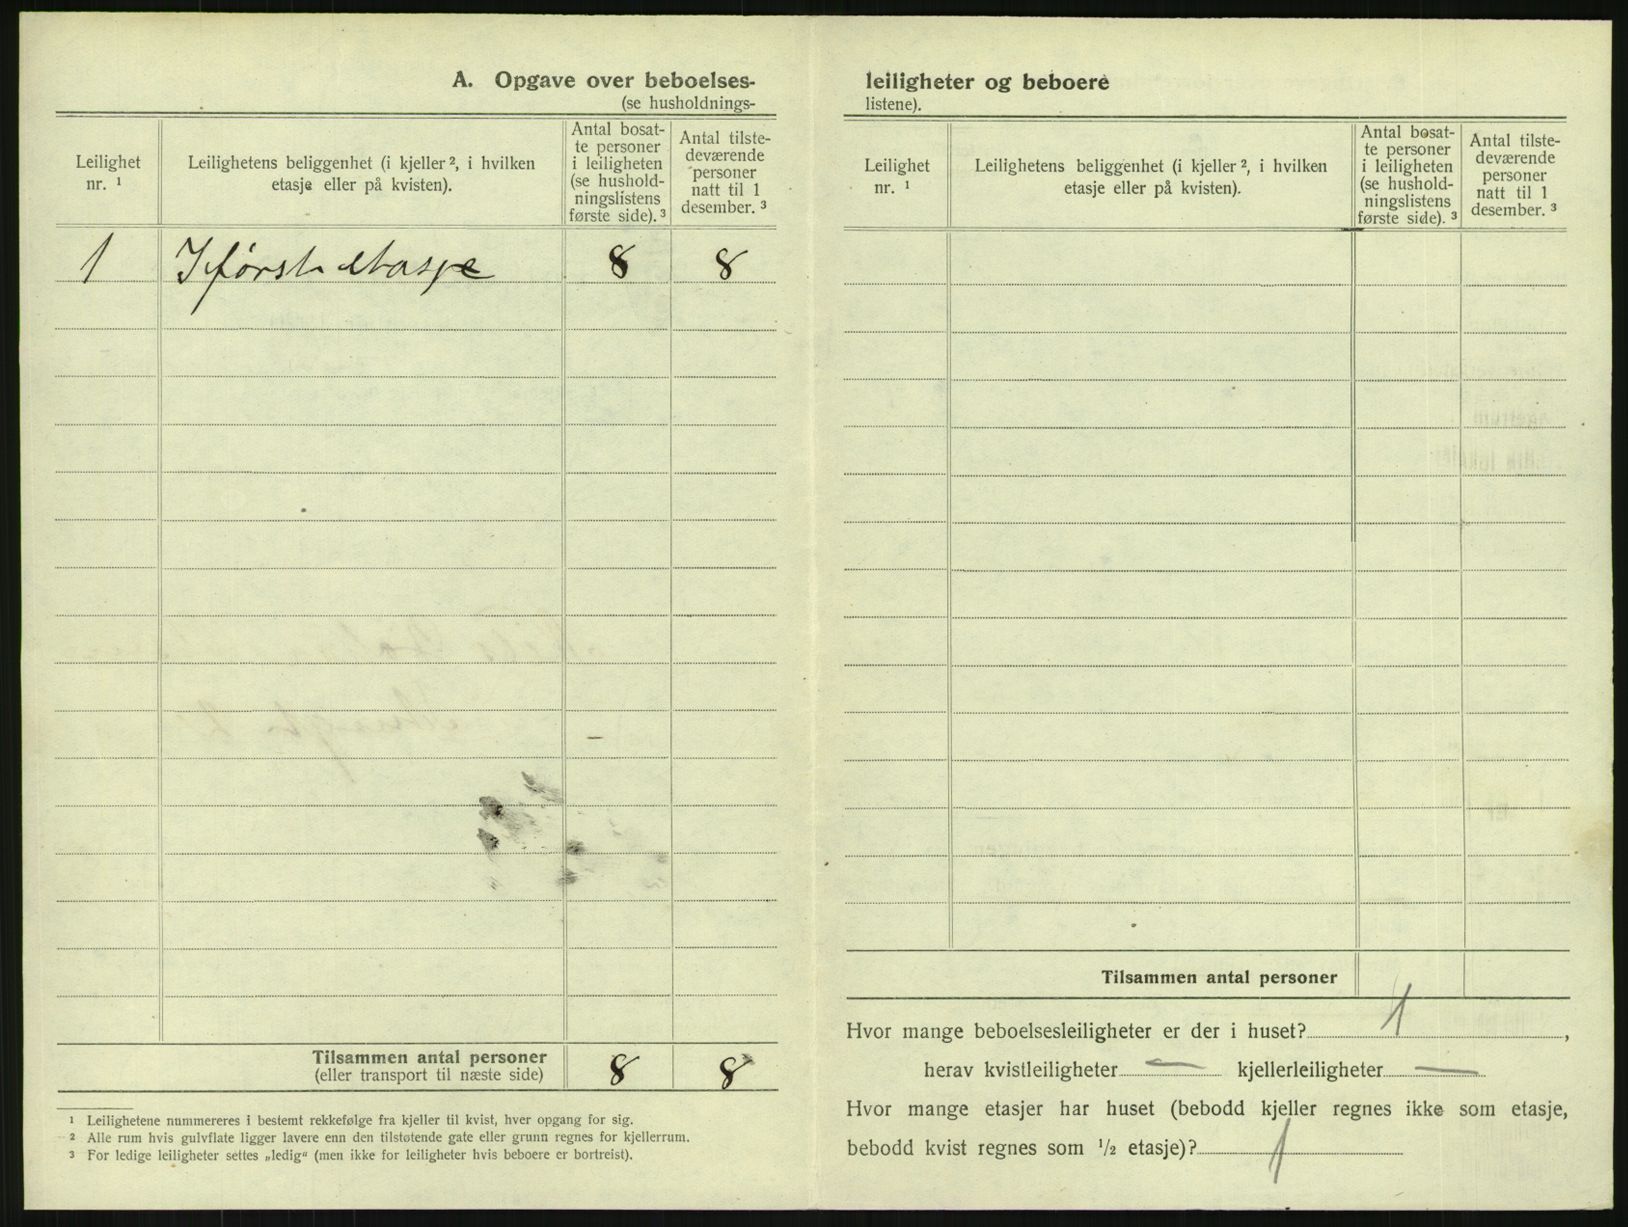 A. Opgave over beboelses-
(se husholdnings-
Leilighet nr. ¹
Leilighetens beliggenhet (i kjeller ², i hvilken etasje eller på kvisten).
Antal bosat-
te personer
i leiligheten
(se hushold-
ningslistens
første side). ³
Antal tilste-
deværende
personer
natt til 1
desember. ³
1 I første etasje 8 8
Tilsammen antal personer 8 8
(eller transport til næste side)
¹ Leilighetene nummereres i bestemt rekkefølge fra kjeller til kvist, hver opgang for sig.
² Alle rum hvis gulvflate ligger lavere enn den tilstøtende gate eller grunn regnes for kjellerrum.
³ For ledige leiligheter settes „ledig“ (men ikke for leiligheter hvis beboere er bortreist).
leiligheter og beboere
listene).
Leilighet nr. ¹
Leilighetens beliggenhet (i kjeller ², i hvilken etasje eller på kvisten).
Antal bosat-
te personer
i leiligheten
(se hushold-
ningslistens
første side). ³
Antal tilste-
deværende
personer
natt til 1
desember. ³
Tilsammen antal personer
Hvor mange beboelsesleiligheter er der i huset? 1,
herav kvistleiligheter — kjellerleiligheter —
Hvor mange etasjer har huset (bebodd kjeller regnes ikke som etasje,
bebodd kvist regnes som ¹/₂ etasje)? 1